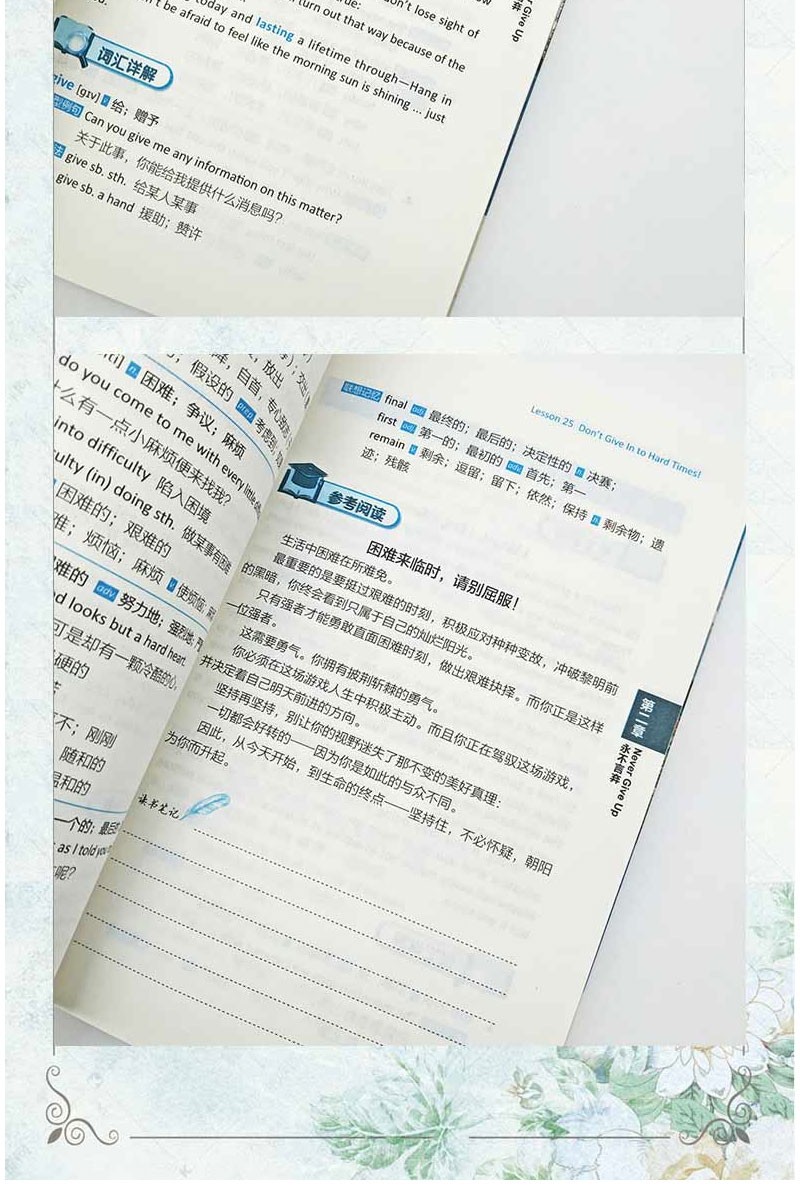 n't lose sight of
true:
turn out that way because of the
today and lasting a lifetime through—Hang in
n't be afraid to feel like the morning sun is shining ... just
Give Up
词汇详解
give [gɪv] 给；赠予
型例句 Can you give me any information on this matter?
关于此事，你能给我提供什么消息吗？
法 give sb. sth. 给某人某事
give sb. a hand 援助；赞许
放出
自首，专心致
假设的 prep 考虑到
n. 困难；争议；麻烦
do you come to me with every little
什么有一点小麻烦便来找我？
into difficulty 陷入困境
culty (in) doing sth. 做某事有困难
困难的；艰难的
难；烦恼；麻烦 v 使烦恼；
难的 adv 努力地；强烈地；
d looks but a hard heart
可是却有一颗冷酷的心，
硬的
不；刚刚
随和的
温和的
一个的；最后
as I told you
呢？
Lesson 25 Don't Give In to Hard Times!
联想记忆 final adj 最终的；最后的；决定性的 n 决赛；
first adj 第一的；最初的 adv 首先；第一
remain v 剩余；逗留；留下；依然；保持 n 剩余物；遗
迹；残骸
参考阅读
困难来临时，请别屈服！
生活中困难在所难免。
最重要的是要挺过艰难的时刻，积极应对种种变故，冲破黎明前
的黑暗，你终会看到只属于自己的灿烂阳光。
只有强者才能勇敢直面困难时刻，做出艰难抉择。而你正是这样
一位强者。
这需要勇气。你拥有披荆斩棘的勇气。
你必须在这场游戏人生中积极主动。而且你正在驾驭这场游戏，
并决定着自己明天前进的方向。
坚持再坚持，别让你的视野迷失了那不变的美好真理：
一切都会好转的——因为你是如此的与众不同。
因此，从今天开始，到生命的终点——坚持住，不必怀疑，朝阳
为你而升起。
读书笔记
第二章
Never Give Up
永不言弃